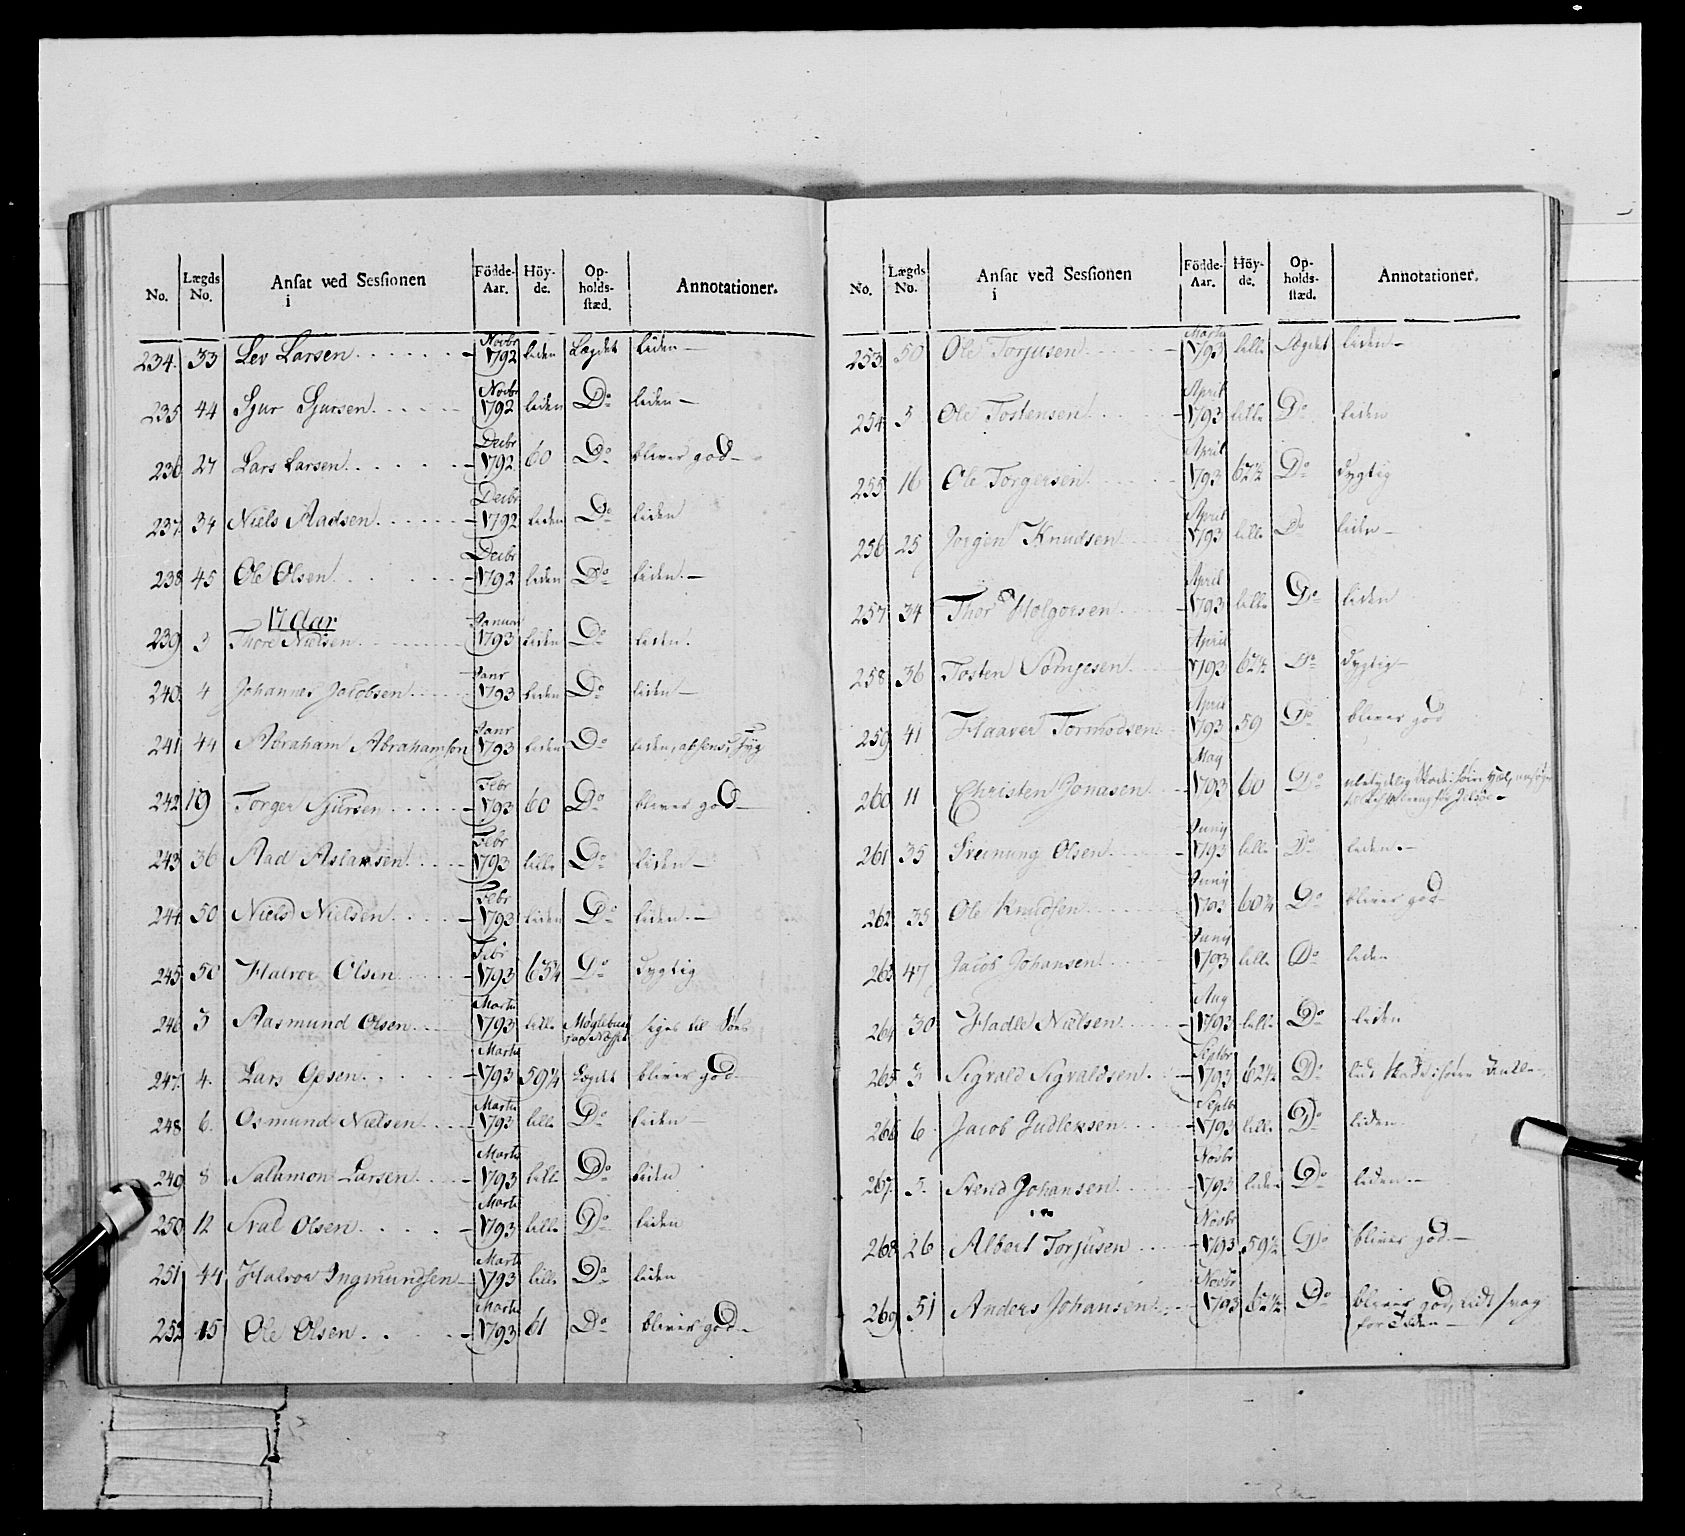 No. Lægds No. Ansat ved Sessionen i Födde-Aar. Höy-de. Op-holds-stæd. Annotationer.
234. 33 Lev Larsen Novbr 1792 liden Lægdet liden
235 44 Sjur Sjursen Novbr 1792 liden Do liden
236 27 Lars Larsen Decbr 1792 60 Do bliver god
237 34 Niels Aadsen Decbr 1792 liden Do liden
238 45 Ole Olsen Decbr 1792 liden Do liden
17 Aar
239 3 Thore Nielsen Januar 1793 liden Do liden
240 4 Johannes Jacobsen Janr 1793 liden Do liden
241 44 Abraham Abrahamsen Janr 1793 liden Do liden, absens, syg
242 19 Torger Sjursen Febr 1793 60 Do bliver god
243 36 Aad Aslaksen Febr 1793 lille Do liden
244 50 Niels Nielsen Febr 1793 liden Do liden
245 50 Halvor Olsen Febr 1793 63¼ Do dygtig
246 3 Aasmund Olsen Marts 1793 lille siges til Søes
247. 4. Lars Olsen Marts 1793 59¼ Lægdet bliver god
248 6. Osmund Nielsen Marts 1793 lille Do liden
249 8 Salamon Larsen Marts 1793 lille Do liden
250 12 Olsen Marts 1793 lille Do liden
251 44 Halvor Ingmundsen Marts 1793 lille Do liden
252 15 Ole Olsen Marts 1793 61 Do bliver god
No. Lægds No. Ansat ved Sessionen i Födde-Aar. Höy-de. Op-holds-stæd. Annotationer.
253 50 Ole Torjusen Marts 1793 lille Lægdet liden
254 5 Ole Tostensen April 1793 lille Do liden
255 16 Ole Torgersen April 1793 62½ Do dygtig
256 25 Jorgen Knudsen April 1793 lille Do liden
257 34 Thor Holgersen April 1793 lille Do liden
258 36 Tosten April 1793 62½ Do dygtig
259 41 Haaver Tormodsen April 1793 59 Do bliver god
260 11 Christen Jonasen May 1793 60 Do
261 35 Sveinung Olsen Juny 1793 lille Do liden
262 35 Ole Knudsen Juny 1793 60¼ Do bliver god
263 47 Jacob Johansen Juny 1793 lille Do liden
264 30 Hadle Nielsen Aug 1793 lille Do liden
265 3 Sigvald Sigvaldsen Septbr 1793 62½ Do
266 6 Jacob Judleksen Septbr 1793 lille Do liden
267. 5. Svend Johansen Novbr 1793 liden Do liden
268 26 Albert Torjusen Novbr 1793 59½ Do bliver god
269 51 Anders Johansen Novbr 1793 62½ Do bliver god, lidt svag
for Tiden